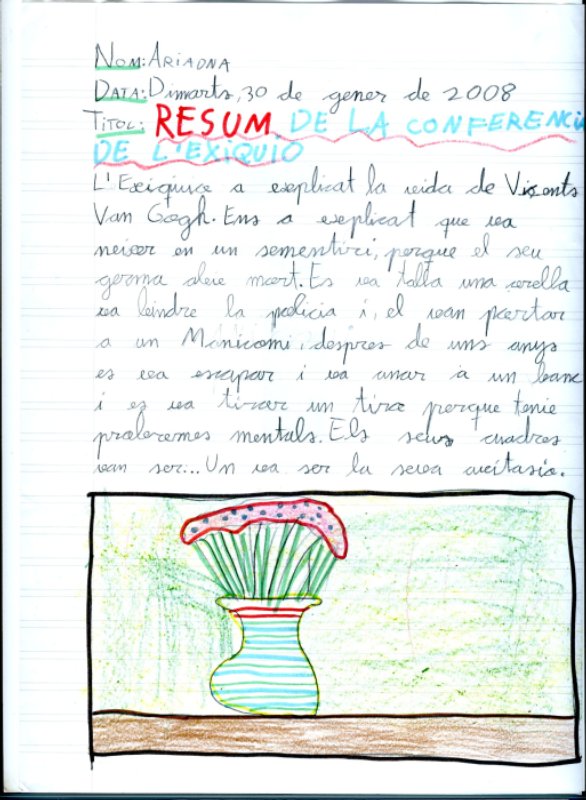 NOM: ARIADNA
DATA: Dimarts, 30 de gener de 2008
TITOL: RESUM DE LA CONFERENCIA
DE L'EXIQUIO
L'Exiquive a explicat la vida de Vicents
Van Gogh. Ens a explicat que va
neixer en un sementiri, perque el seu
germa alou mort. Es va talla una orella
va vindre la policia i, el van portar
a un Manicomi, despres de uns anys
es va escapar i va anar a un banc
i es va tirar un tirc perque tenie
probremes mentals. Els seus cuadres
van ser... Un va ser la seva auitasio.